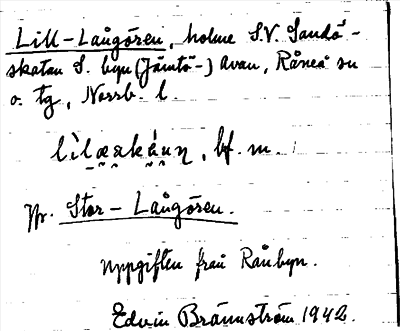 Lill-Laugören, holme S.V. Sandö-
skatan S. byn (Jämtö-) Avan, Råneå sn
o. tg, Norrb. l.
bf. m.
Jfr. Stor-Laugören.
Uppgiften från Rånbyn.
Edvin Brännström 1942.